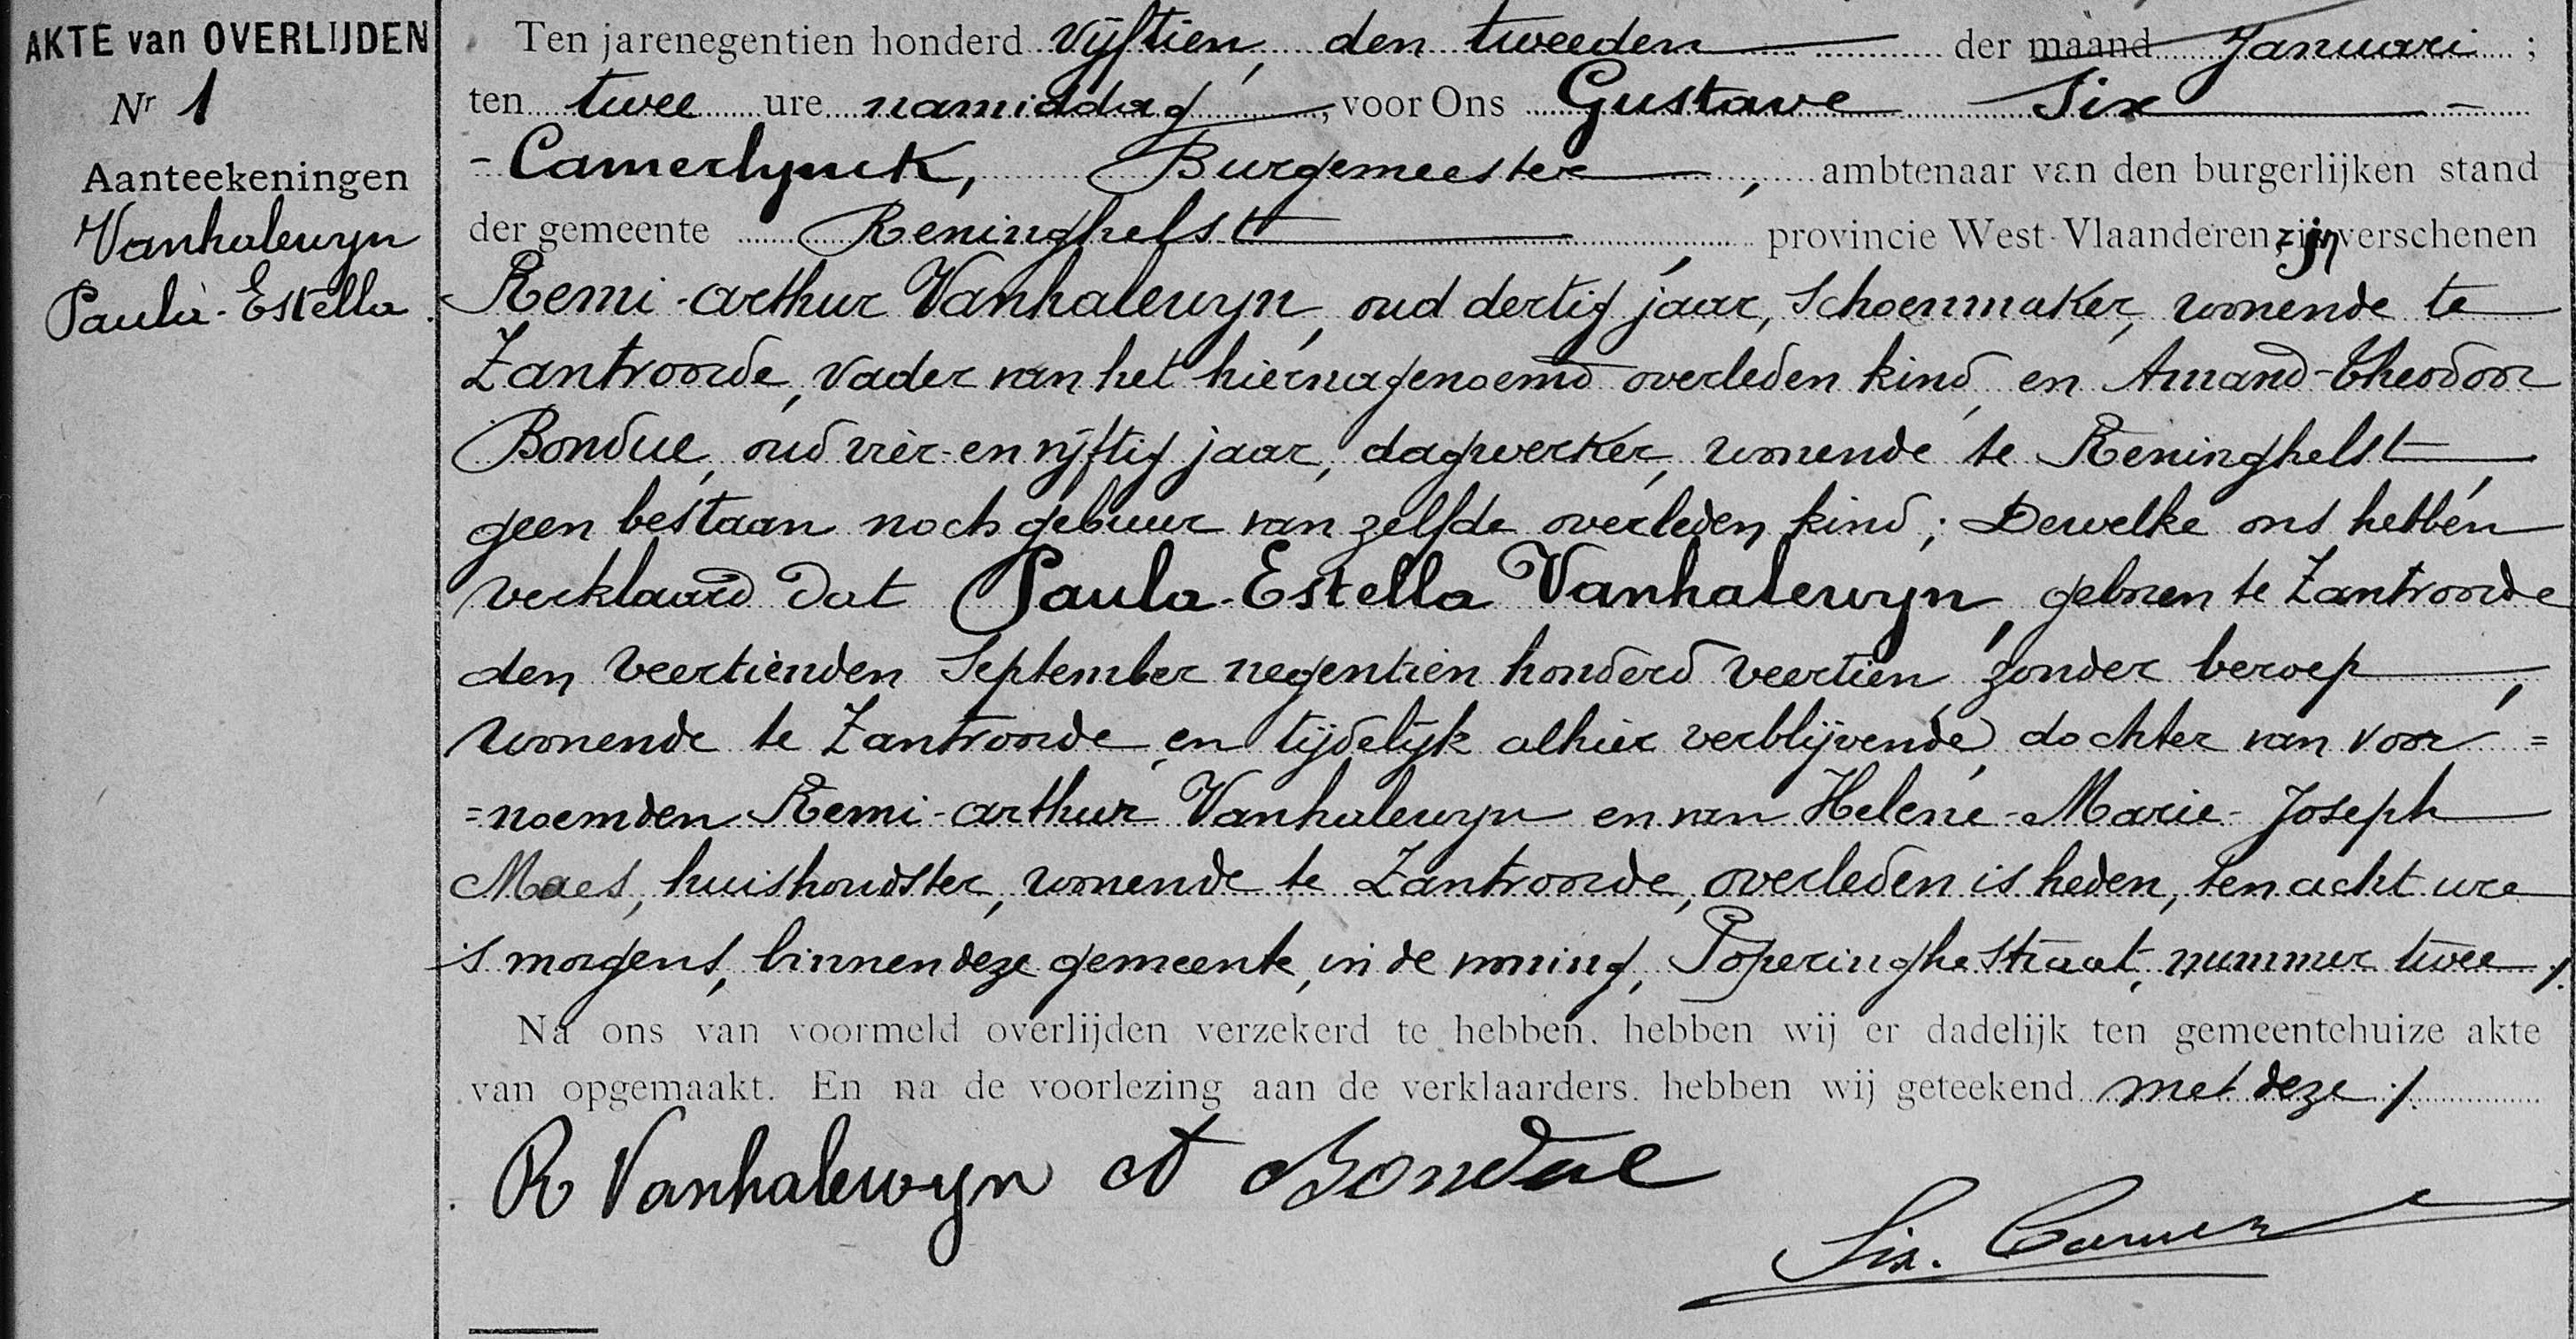 AKTE van OVERLIJDEN
Nr 1
Aanteekeningen
Vanhalewyn
Paula-Estella.
Ten jare negentien honderd vijftien, den tweeden der maand Januari ;
ten twee ure namiddag, voor Ons Gustave Six -
- Camerlynck, Burgemeester, ambtenaar van den burgerlijken stand
der gemeente Reninghelst, provincie West-Vlaanderen, zijn verschenen
Remi-Arthur Vanhalewyn, oud dertig jaar, Schoenmaker, wonende te
Zantvoorde, vader van het hiernagenoemd overleden kind, en Amand-Theodoor
Bondue, oud vier-en vijftig jaar, dagwerker, wonende te Reninghelst,
geen bestaan noch gebuur van zelfde overleden kind; Dewelke ons hebben
verklaard dat Paula-Estella Vanhalewyn, geboren te Zantvoorde
den veertienden September negentien honderd veertien, zonder beroep,
wonende te Zantvoorde, en tijdelijk alhier verblijvende, dochter van voor=
=noemden Remi-Arthur Vanhalewyn en van Helene-Marie-Joseph
Maes, huishoudster, wonende te Zantvoorde, overleden is heden, ten acht ure
's morgens, binnen deze gemeente, in de woning, Poperinghe straat, nummer twee ./.
Na ons van voormeld overlijden verzekerd te hebben, hebben wij er dadelijk ten gemeentehuize akte
van opgemaakt. En na de voorlezing aan de verklaarders, hebben wij geteekend met deze ./.
R Vanhalewyn A Bondue
Six. Camer